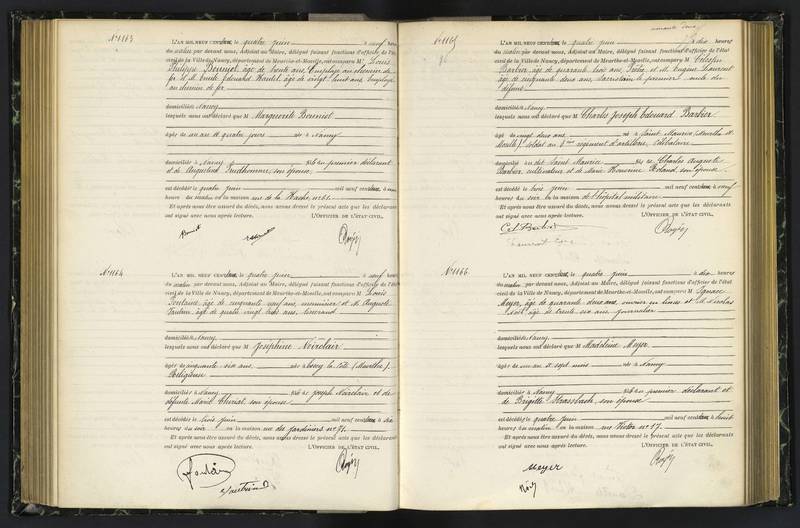 N° 1163
L'AN MIL NEUF CENT deux, le quatre juin à neuf heures
du matin par devant nous, Adjoint au Maire, délégué faisant fonctions d'officier de l'état
civil de la Ville de Nancy, département de Meurthe-et-Moselle, ont comparu M Louis
Philippe âgé de trente ans, Employé au chemin de
fer et M. Emile Edouard âgé de vingt huit ans, employé
au chemin de fer
domiciliés à Nancy
lesquels nous ont déclaré que Marguerite
âgée de un an et quatre jours née à Nancy
domiciliée à Nancy fille du premier déclarant
et de Angeline Prudhomme, son épouse
est décédée le quatre juin mil neuf cent deux, à
heures du matin en la maison rue de la Hache, n° 61.
Et après nous être assuré du décès, nous avons dressé le présent acte que les déclarants
ont signé avec nous après lecture. L'OFFICIER DE L'ÉTAT CIVIL,
N° 1164
L'AN MIL NEUF CENT deux, le quatre juin à neuf heures
du matin par devant nous, Adjoint au Maire, délégué faisant fonctions d'officier de l'état
civil de la Ville de Nancy, département de Meurthe-et-Moselle, ont comparu M Louis
Fontaine, âgé de cinquante neuf ans, menuisier et M. Auguste
âgé de quatre vingt trois ans, tisserand
domiciliés à Nancy
lesquels nous ont déclaré que M Joséphine Noirclair
âgée de cinquante six ans née à (Meurthe).
Religieuse
domiciliée à Nancy fille de Joseph Noirclair et de
défunte Marie Thiriet, son épouse
est décédée le trois juin mil neuf cent deux, à six
heures du soir en la maison rue des Jardiniers n° 71.
Et après nous être assuré du décès, nous avons dressé le présent acte que les déclarants
ont signé avec nous après lecture. L'OFFICIER DE L'ÉTAT CIVIL,
N° 1165
L'AN MIL NEUF CENT deux, le quatre juin à dix heures
du matin par devant nous, Adjoint au Maire, délégué faisant fonctions d'officier de l'état
civil de la Ville de Nancy, département de Meurthe-et-Moselle, ont comparu M Célestin
Barbier âgé de quarante trois ans, et M. Eugène Laurent
âgé de cinquante deux ans, sacristain le premier oncle du
défunt
domiciliés à Nancy
lesquels nous ont déclaré que M Charles Joseph Edouard Barbier
âgé de vingt deux ans né à Saint Maurice (Meurthe et
Moselle) soldat au 8me régiment d'artillerie, célibataire
domicilié au dit Saint Maurice fils de Charles Auguste
Barbier cultivateur et de Marie Honorine son épouse
est décédé le trois juin mil neuf cent deux, à neuf
heures du soir en la maison de l'hôpital militaire
Et après nous être assuré du décès, nous avons dressé le présent acte que les déclarants
ont signé avec nous après lecture. L'OFFICIER DE L'ÉTAT CIVIL,
N° 1166
L'AN MIL NEUF CENT deux, le quatre juin à dix heures
du matin par devant nous, Adjoint au Maire, délégué faisant fonctions d'officier de l'état
civil de la Ville de Nancy, département de Meurthe-et-Moselle, ont comparu M Ignace
Meyer, âgé de quarante deux ans, et M. Nicolas
âgé de trente six ans journalier
domiciliés à Nancy
lesquels nous ont déclaré que M Madeleine Meyer
âgée de un an et sept mois née à Nancy
domiciliée à Nancy fille du premier déclarant et
de Brigitte Strassbach, son épouse
est décédée le quatre juin mil neuf cent deux, à huit
heures du matin en la maison n° 17.
Et après nous être assuré du décès, nous avons dressé le présent acte que les déclarants
ont signé avec nous après lecture. L'OFFICIER DE L'ÉTAT CIVIL,
Meyer